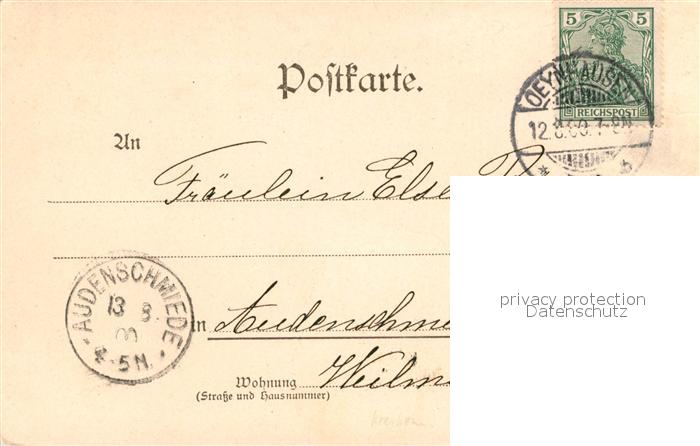 5 5
REICHSPOST
Postkarte.
OEYNHAUSEN
12.8.00.7-8N
An
Fräulein Else
privacy protection
Datenschutz
AUDENSCHMIEDE
13 8
00
4-5N.
in Audenschme
Wohnung Weilm
(Straße und Hausnummer)